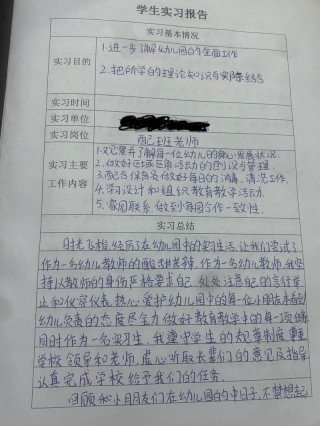 学生实习报告
实习基本情况
实习目的
1.进一步了解幼儿园的全面工作
2.把所学的理论知识与实际结合
实习时间
实习单位
实习岗位
配班老师
实习主要
工作内容
1.观察并了解每一位幼儿的身心发展状况.
2.做好区域区角活动的创设与管理.
3.配合保育员做好每日的消毒,清洁工作.
4.学习设计和组织教育教学活动.
5.家园联系,做到家园合作一致性.
实习总结
时光飞梭,经历了在幼儿园中的实习生活,让我们尝试了
作为一名幼儿教师的酸甜苦辣.作为一名幼儿教师,我坚
持以教师的身份严格要求自己,处处注意自己的言行举
止和仪容仪表,热心爱护幼儿园中的每一位小朋友,本着对
幼儿负责的态度尽全力做好教育教学中的每一项任务
同时作为一名实习生,我遵守学生的规章制度,尊重
学校领导和老师,虚心听取长辈们的意见及指导
认真完成学校给予我们的任务.
回顾和小朋友们在幼儿园的中日子,不禁想起